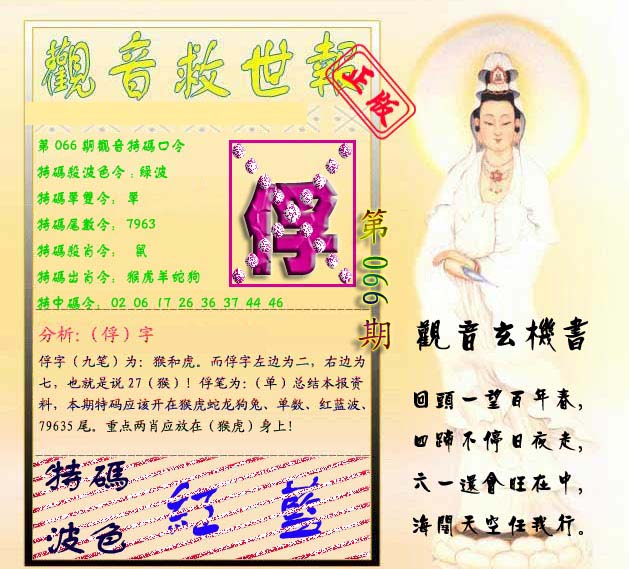 觀音救世報
正版
第066期觀音特碼口令
特碼殺波色令：綠波
特碼單雙令： 單
特碼尾數令： 7963
特碼殺肖令： 鼠
特碼出肖令： 猴虎羊蛇狗
特中碼令： 02 06 17 26 36 37 44 46
俘
第066期
分析:（俘）字
俘字（九笔）为：猴和虎。而俘字左边为二，右边为
七，也就是说 27（猴）！俘笔为：（单）总结本报资
料，本期特码应该开在猴虎蛇龙狗兔、单数、红蓝波、
79635 尾。重点两肖应放在（猴虎）身上！
特碼
波色
紅 藍
觀音玄機書
回頭一望百年春，
四蹄不停日夜走，
六一還會旺在中，
海闊天空任我行。